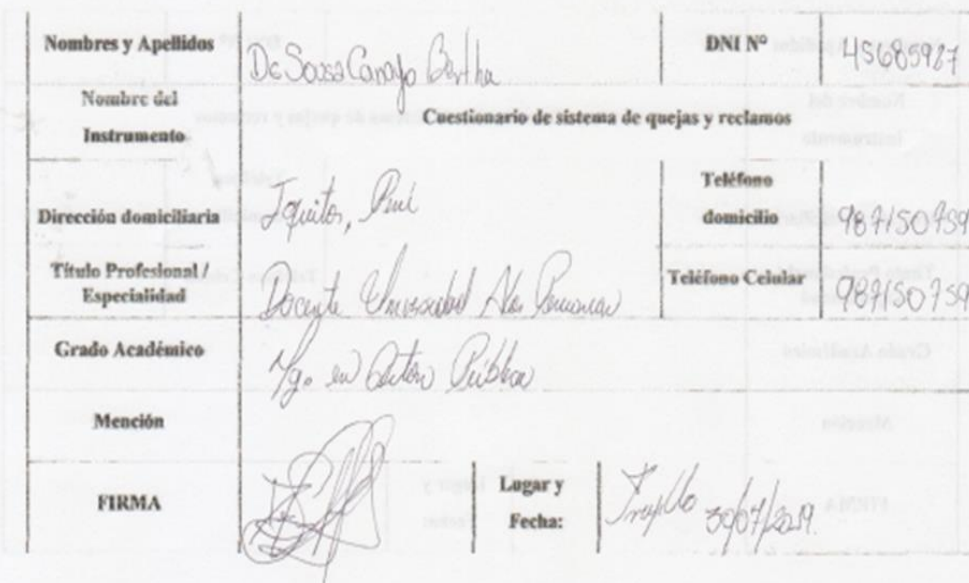 Nombres y Apellidos De Sousa Canayo Bertha DNI Nº 45685987
Nombre del
Instrumento Cuestionario de sistema de quejas y reclamos
Dirección domiciliaria Iquitos, Perú Teléfono
domicilio 987150759
Título Profesional /
Especialidad Docente Universidad Alas Peruanas Teléfono Celular 987150759
Grado Académico Mg. en Gestión Pública
Mención
FIRMA Lugar y
Fecha: Trujillo 30/07/2019.